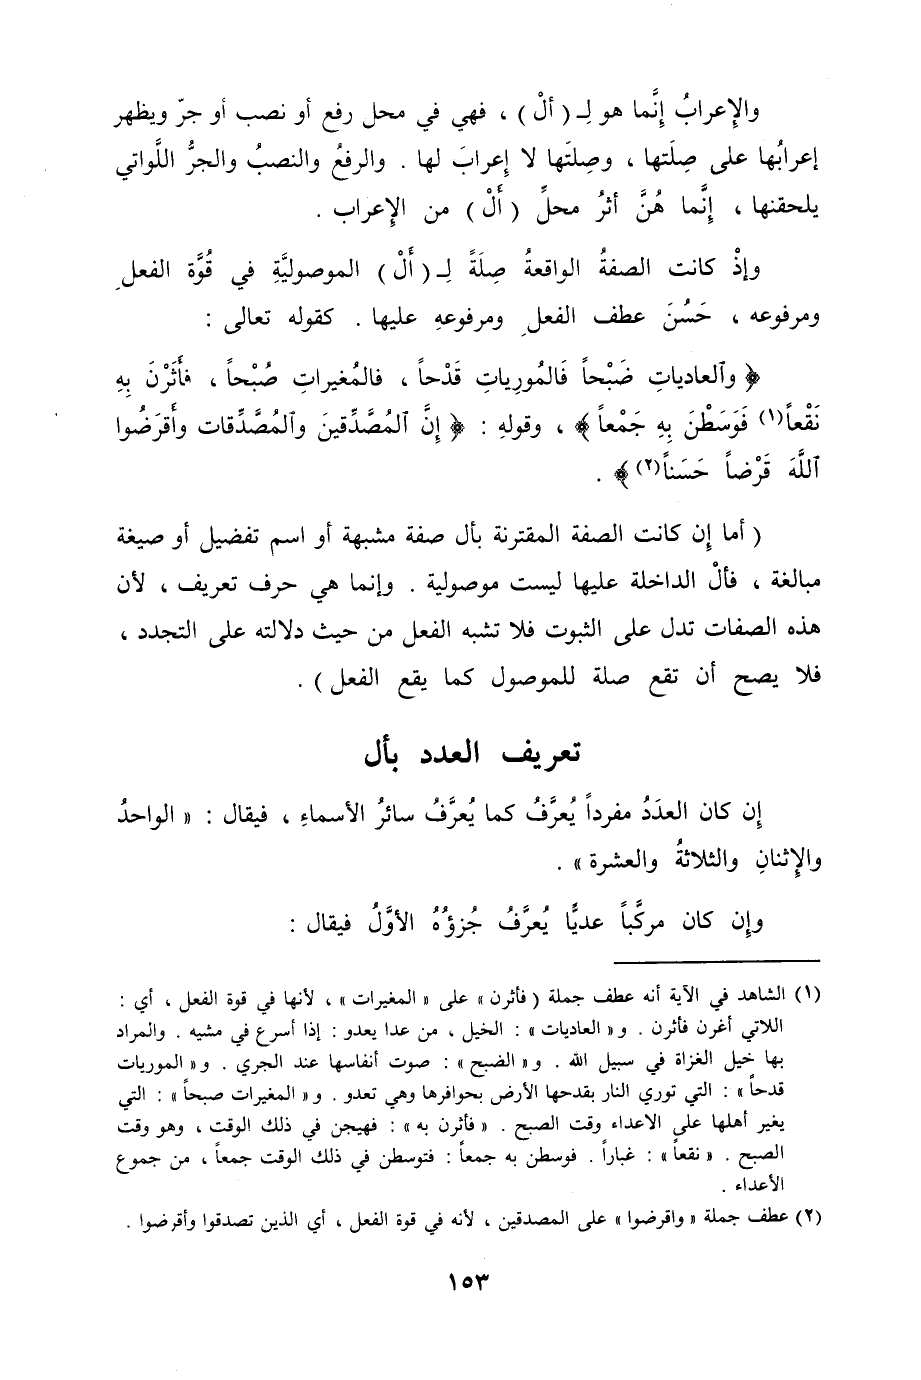 والإعرابُ إنَّما هو لِـ ( ألْ ) ، فهي في محل رفع أو نصب أو جرّ ويظهر
إعرابُها على صِلَتها ، وصِلتَها لا إعرابَ لها . والرفعُ والنصبُ والجرُّ اللَّواتي
يلحقنها ، إنَّما هُنَّ أثرُ محلِّ ( أَلْ ) من الإعراب .
وإذْ كانت الصفةُ الواقعةُ صِلَةً لِـ ( أَلْ ) الموصوليَّةِ في قُوَّة الفعلِ
ومرفوعه ، حَسُنَ عطف الفعلِ ومرفوعهِ عليها . كقوله تعالى :
﴿ وٱلعادياتِ ضَبْحاً فَالمُورِياتِ قَدْحاً ، فالمُغيراتِ صُبْحاً ، فأَثَرْنَ بِهِ
نَقْعاً(١) فَوَسَطْنَ بِهِ جَمْعاً ﴾ ، وقولهِ : ﴿ إنَّ ٱلمُصَّدِّقينَ وٱلمُصَّدِّقات وأَقرَضُوا
ٱللَّهَ قَرْضاً حَسَناً(٢) ﴾ .
( أما إن كانت الصفة المقترنة بأل صفة مشبهة أو اسم تفضيل أو صيغة
مبالغة ، فألْ الداخلة عليها ليست موصولية . وإنما هي حرف تعريف ، لأن
هذه الصفات تدل على الثبوت فلا تشبه الفعل من حيث دلالته على التجدد ،
فلا يصح أن تقع صلة للموصول كما يقع الفعل ) .
تعريف العدد بأل
إن كان العدَدُ مفرداً يُعرَّفُ كما يُعرَّفُ سائرُ الأسماءِ ، فيقال : « الواحدُ
والإثنانِ والثلاثةُ والعشرة » .
وإن كان مركَّباً عديًّا يُعرَّفُ جُزؤُهُ الأوَّلُ فيقال :
(١) الشاهد في الآية أنه عطف جملة ( فأثرن » على « المغيرات » ، لأنها في قوة الفعل ، أي :
اللاتي أغرن فأثرن . و « العاديات » : الخيل ، من عدا يعدو : إذا أسرع في مشيه . والمراد
بها خيل الغزاة في سبيل الله . و « الضبح » : صوت أنفاسها عند الجري . و « الموريات
قدحاً » : التي توري النار بقدحها الأرض بحوافرها وهي تعدو . و « المغيرات صبحاً » : التي
يغير أهلها على الاعداء وقت الصبح . « فأثرن به » : فهيجن في ذلك الوقت ، وهو وقت
الصبح . « نقعاً » : غباراً . فوسطن به جمعاً : فتوسطن في ذلك الوقت جمعاً ، من جموع
الأعداء .
(٢) عطف جملة « واقرضوا » على المصدقين ، لأنه في قوة الفعل ، أي الذين تصدقوا وأقرضوا .
١٥٣